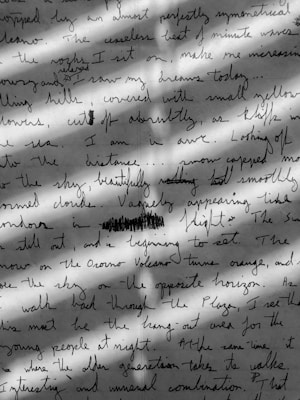 topped by an almost perfectly symmetrical
volcano. The ceaseless beat of minute waves
the rocks I sit on, make me increasing
drowsy and I saw my dreams today...
rolling hills, covered with small yellow
flowers, cut off abrubtly, as kliffs in
the sea. I am in awe. Looking of
into the distance... snow capped mo
to the sky, beautifully smoothly
formed clouds. Vaguely appearing like
condors in flight. The Su
is still out, and is beginning to set. The
snow on the Osorno Volcano turns orange, and s
does the sky on the opposite horizon. As
I walk back through the Plaza, I see th
this must be the hang-out area for the
young people at night. At the same time it
is where the older generation takes its walks.
Interesting and unusual combination. If that